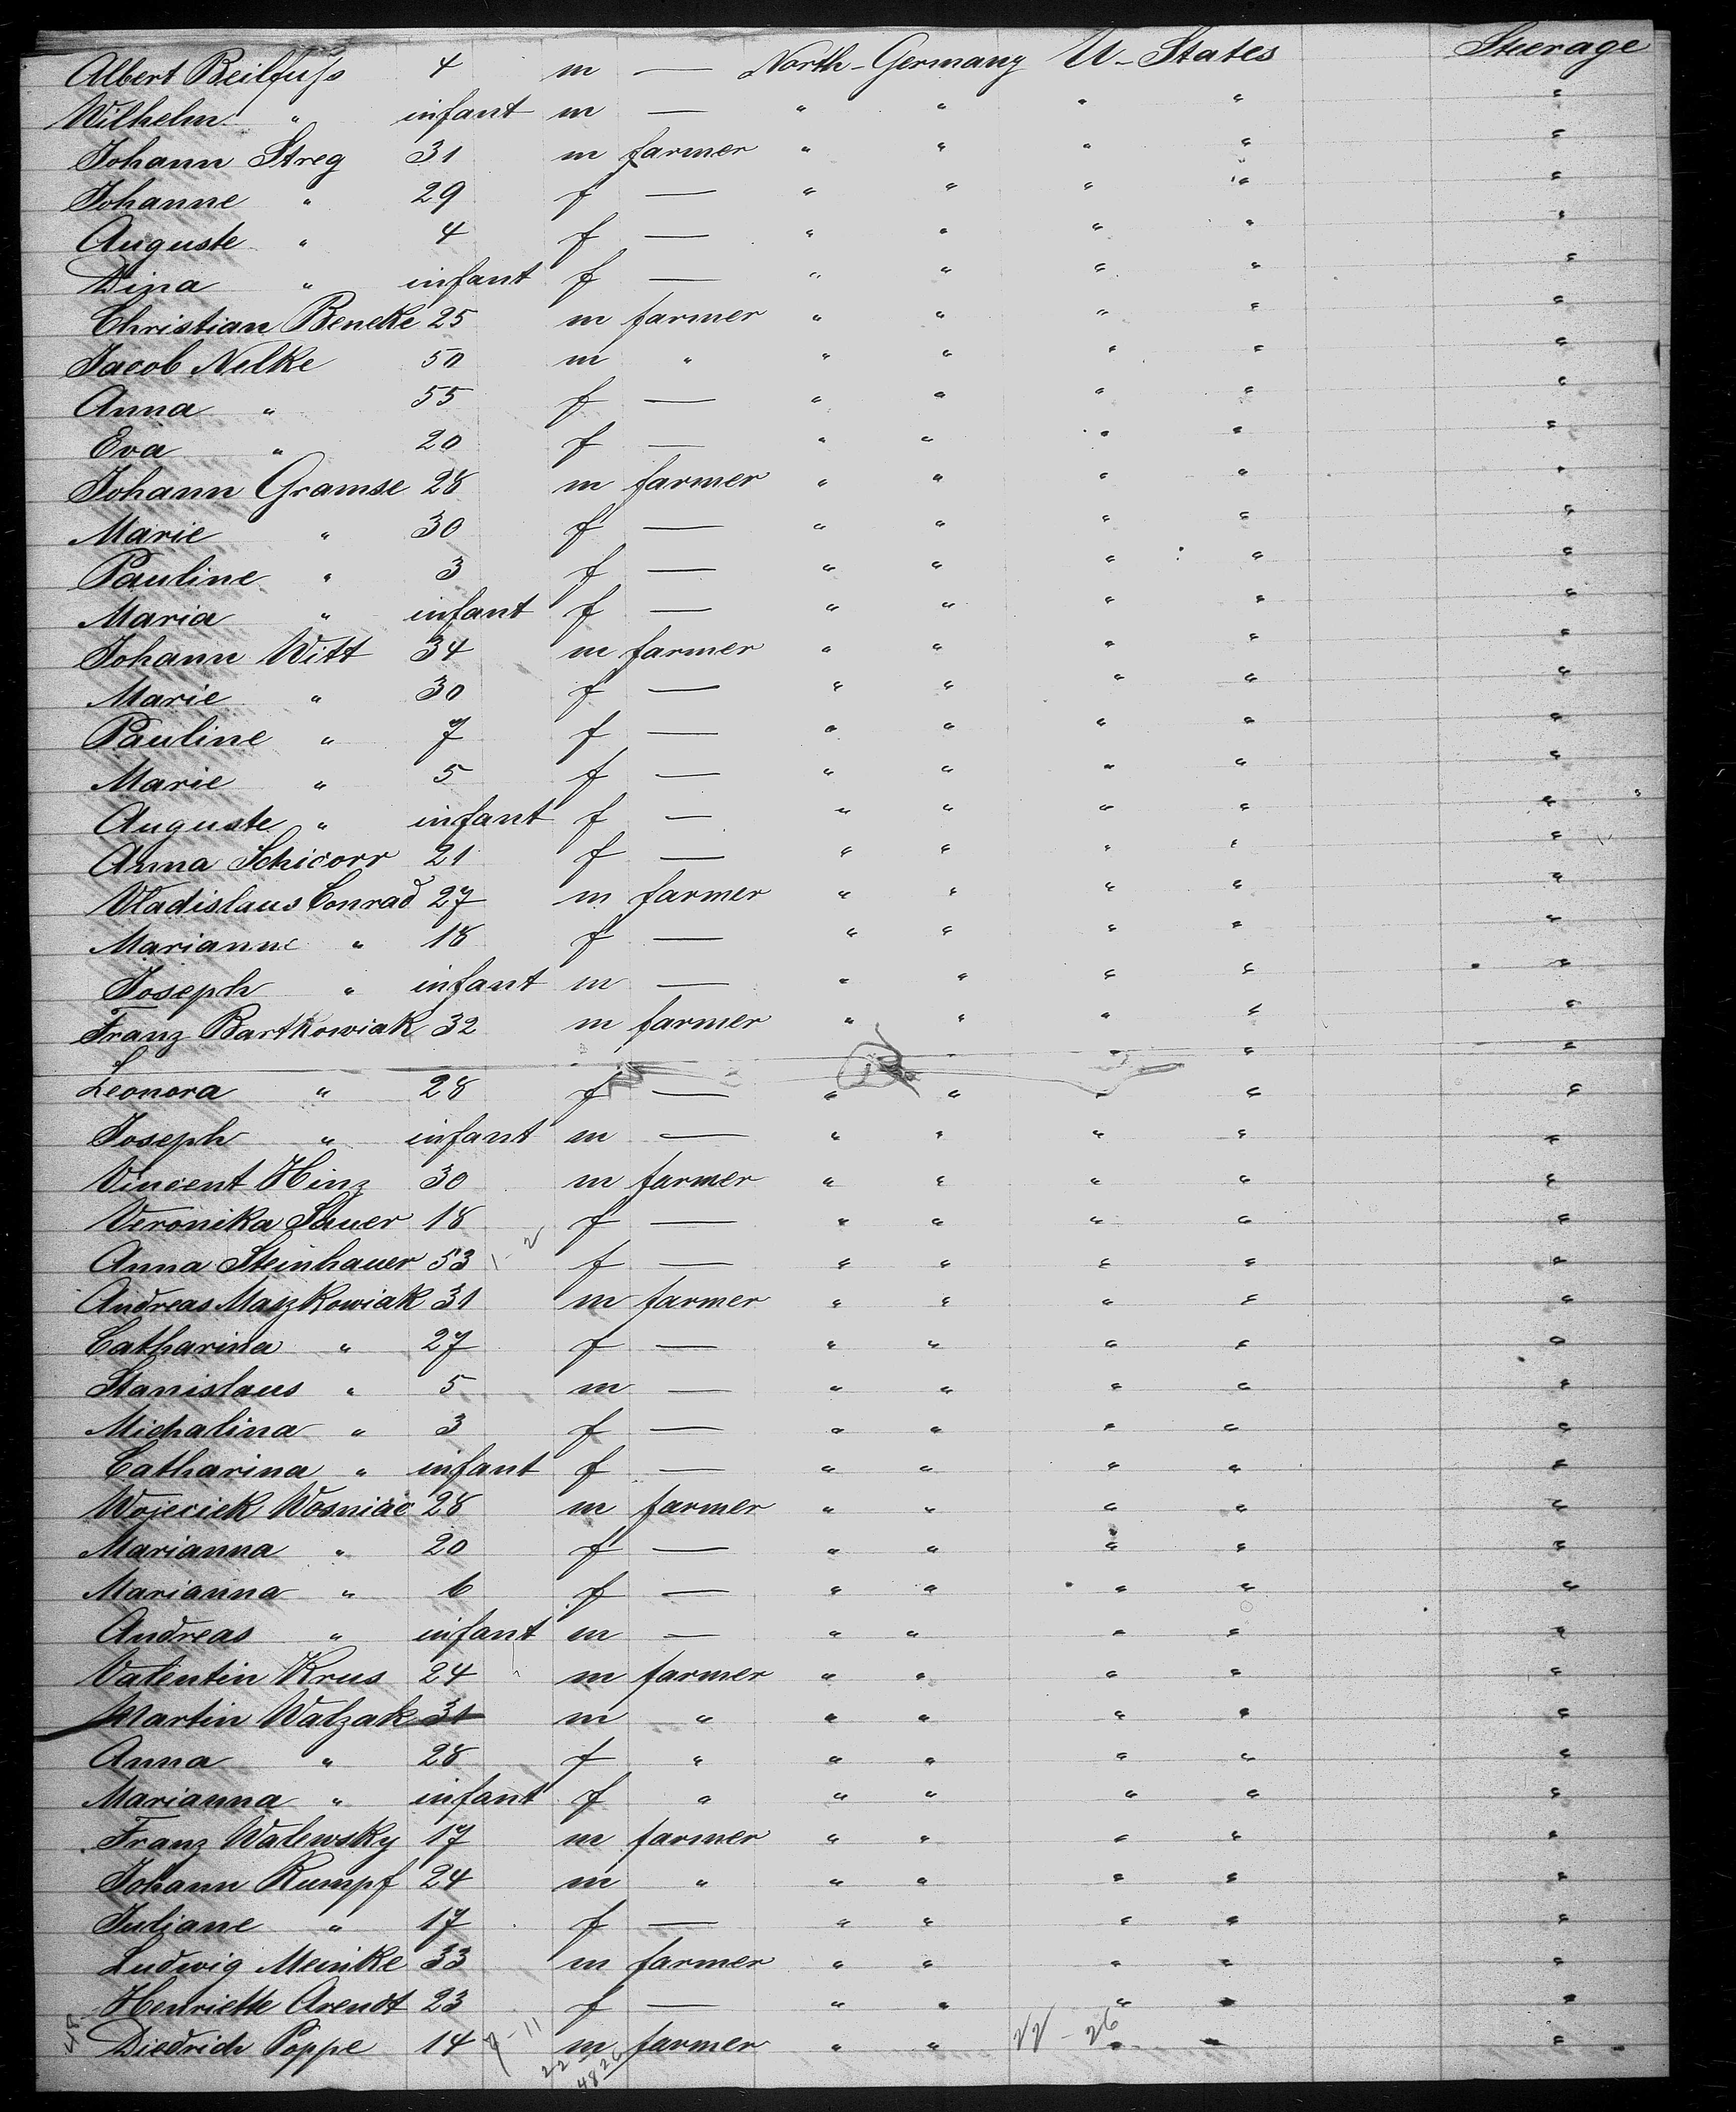 Albert Beilfuss 4 m — North-Germany U-States Steerage
Wilhelm " infant m — " " " " "
Johann Streg 31 m farmer " " " " "
Johanne " 29 f — " " " " "
Auguste " 4 f — " " " " "
Dina " infant f — " " " " "
Christian Beneke 25 m farmer " " " " "
Jacob Nelke 50 m " " " " " "
Anna " 55 f — " " " " "
Eva " 20 f — " " " " "
Johann Gramse 28 m farmer " " " " "
Marie " 30 f — " " " " "
Pauline " 3 f — " " " " "
Maria " infant f — " " " " "
Johann Witt 34 m farmer " " " " "
Marie " 30 f — " " " " "
Pauline " 7 f — " " " " "
Marie " 5 f — " " " " "
Auguste " infant f — " " " " "
Anna Schicorr 21 f — " " " " "
Vladislaus Conrad 27 m farmer " " " " "
Marianne " 18 f — " " " " "
Joseph " infant m — " " " " "
Franz Bartkowiak 32 m farmer " " " " "
Leonora " 28 f — " " " " "
Joseph " infant m — " " " " "
Vincent Hinz 30 m farmer " " " " "
Veronika Sauer 18 f — " " " " "
Anna Steinhauer 53 f — " " " " "
Andreas Matzkowiak 31 m farmer " " " " "
Catharina " 27 f — " " " " "
Stanislaus " 5 m — " " " " "
Michalina " 3 f — " " " " "
Catharina " infant f — " " " " "
Wojeciek Wosniac 28 m farmer " " " " "
Marianna " 20 f — " " " " "
Marianna " 6 f — " " " " "
Andreas " infant m — " " " " "
Valentin Krus 24 m farmer " " " " "
Martin Walzak 31 m " " " " " "
Anna " 28 f " " " " " "
Marianna " infant f " " " " " "
Franz Walewsky 17 m farmer " " " " "
Johann Rumpf 24 m " " " " " "
Juliane " 17 f — " " " " "
Ludwig Meinke 33 m farmer " " " " "
Henriette Arendt 23 f — " " " " "
Diedrich Poppe 14 7-11 m farmer " " 22-26 " " "
22 26
48